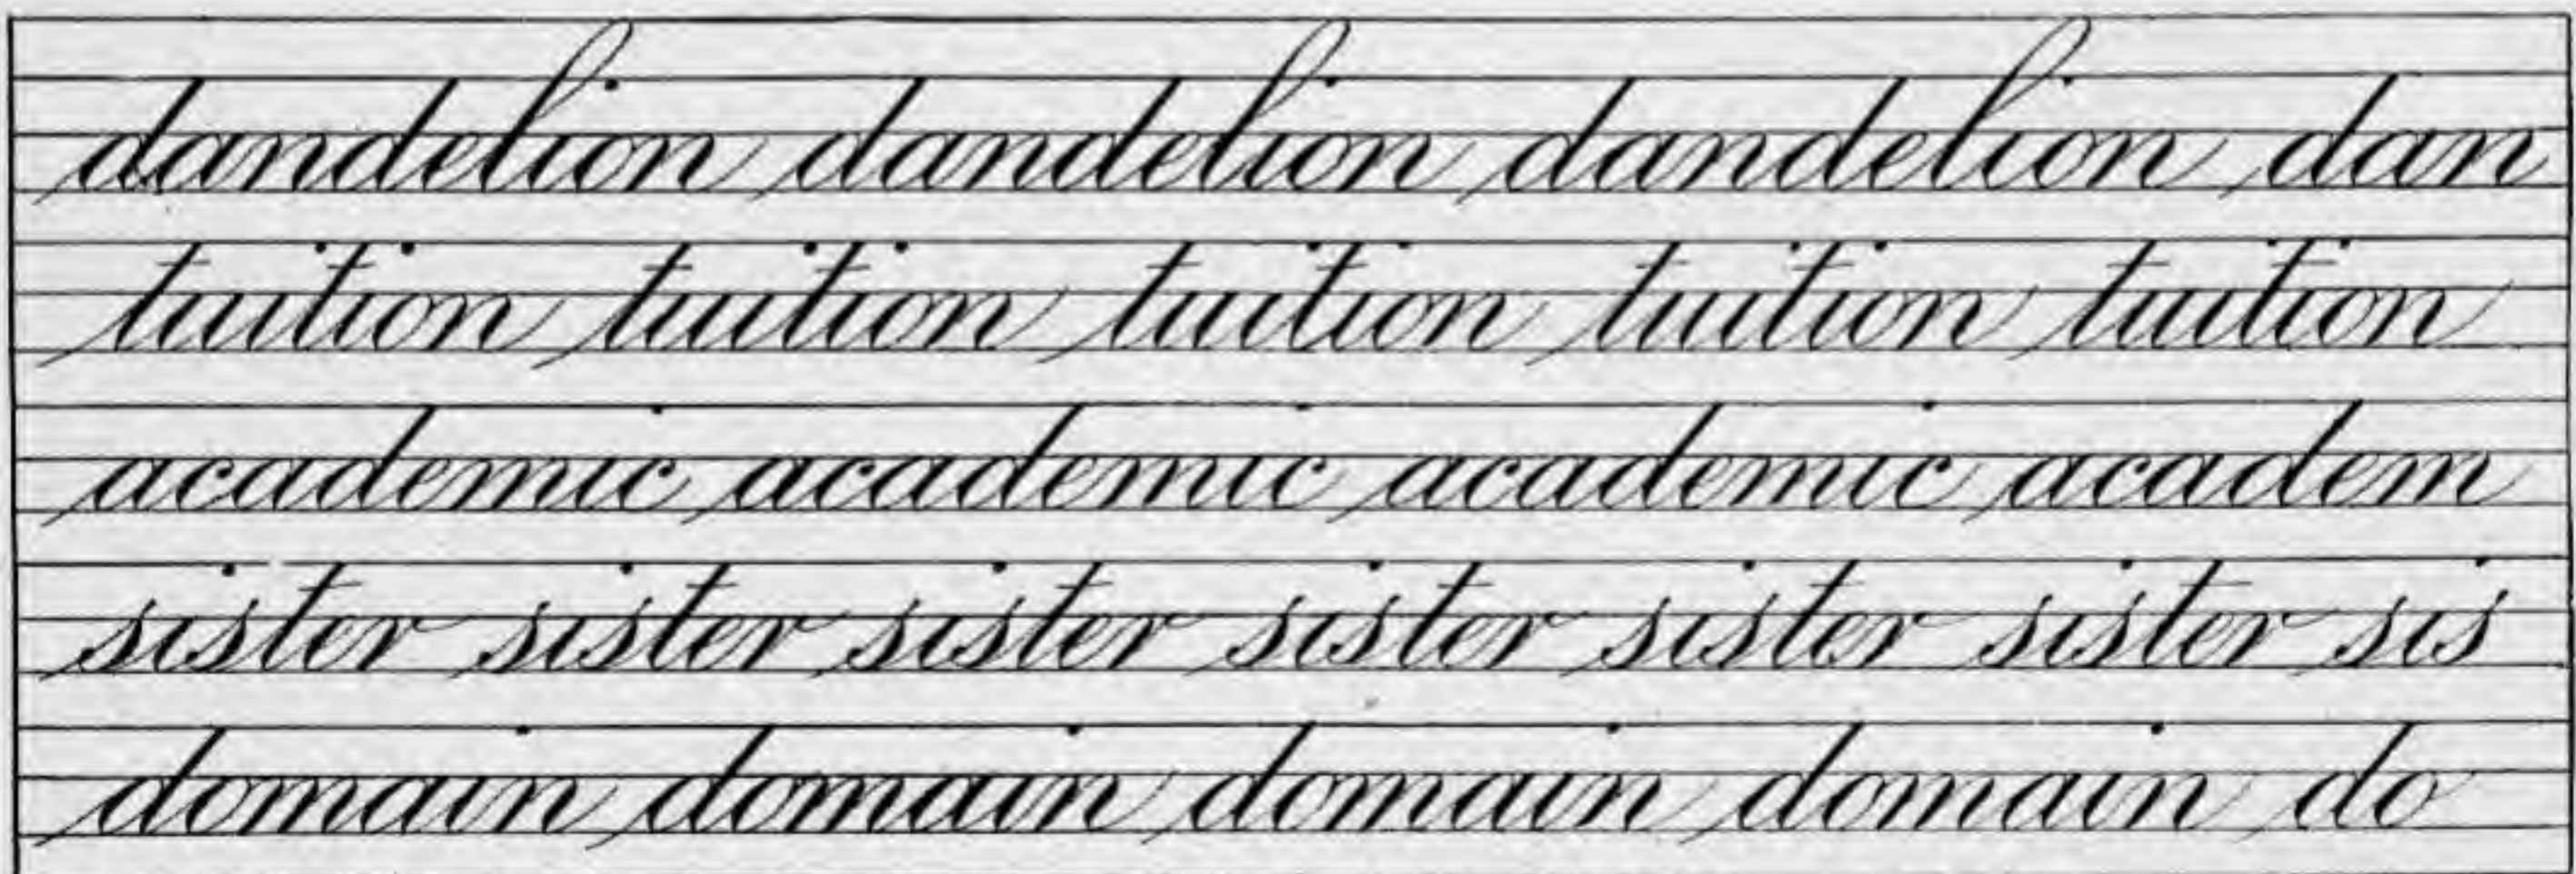 dandelion dandelion dandelion dan
tuition tuition tuition tuition tuition
academic academic academic academ
sister sister sister sister sister sister sis
domain domain domain domain do